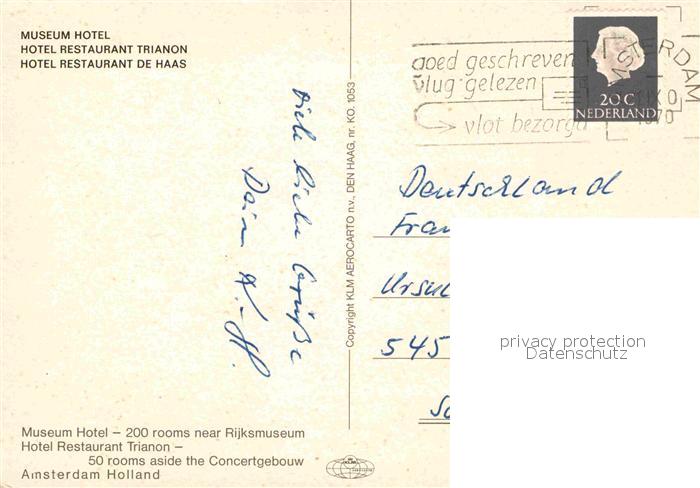 MUSEUM HOTEL
HOTEL RESTAURANT TRIANON
HOTEL RESTAURANT DE HAAS
goed geschreven
vlug gelezen
vlot bezorgd
AMSTERDAM
1970
20 C
NEDERLAND
Viele liebe Grüße
Dein
Copyright KLM AEROCARTO n.v., DEN HAAG, nr. KO. 1053
Deutschland
Frau
Ursul
545
privacy protection
Datenschutz
Museum Hotel – 200 rooms near Rijksmuseum
Hotel Restaurant Trianon –
50 rooms aside the Concertgebouw
Amsterdam Holland